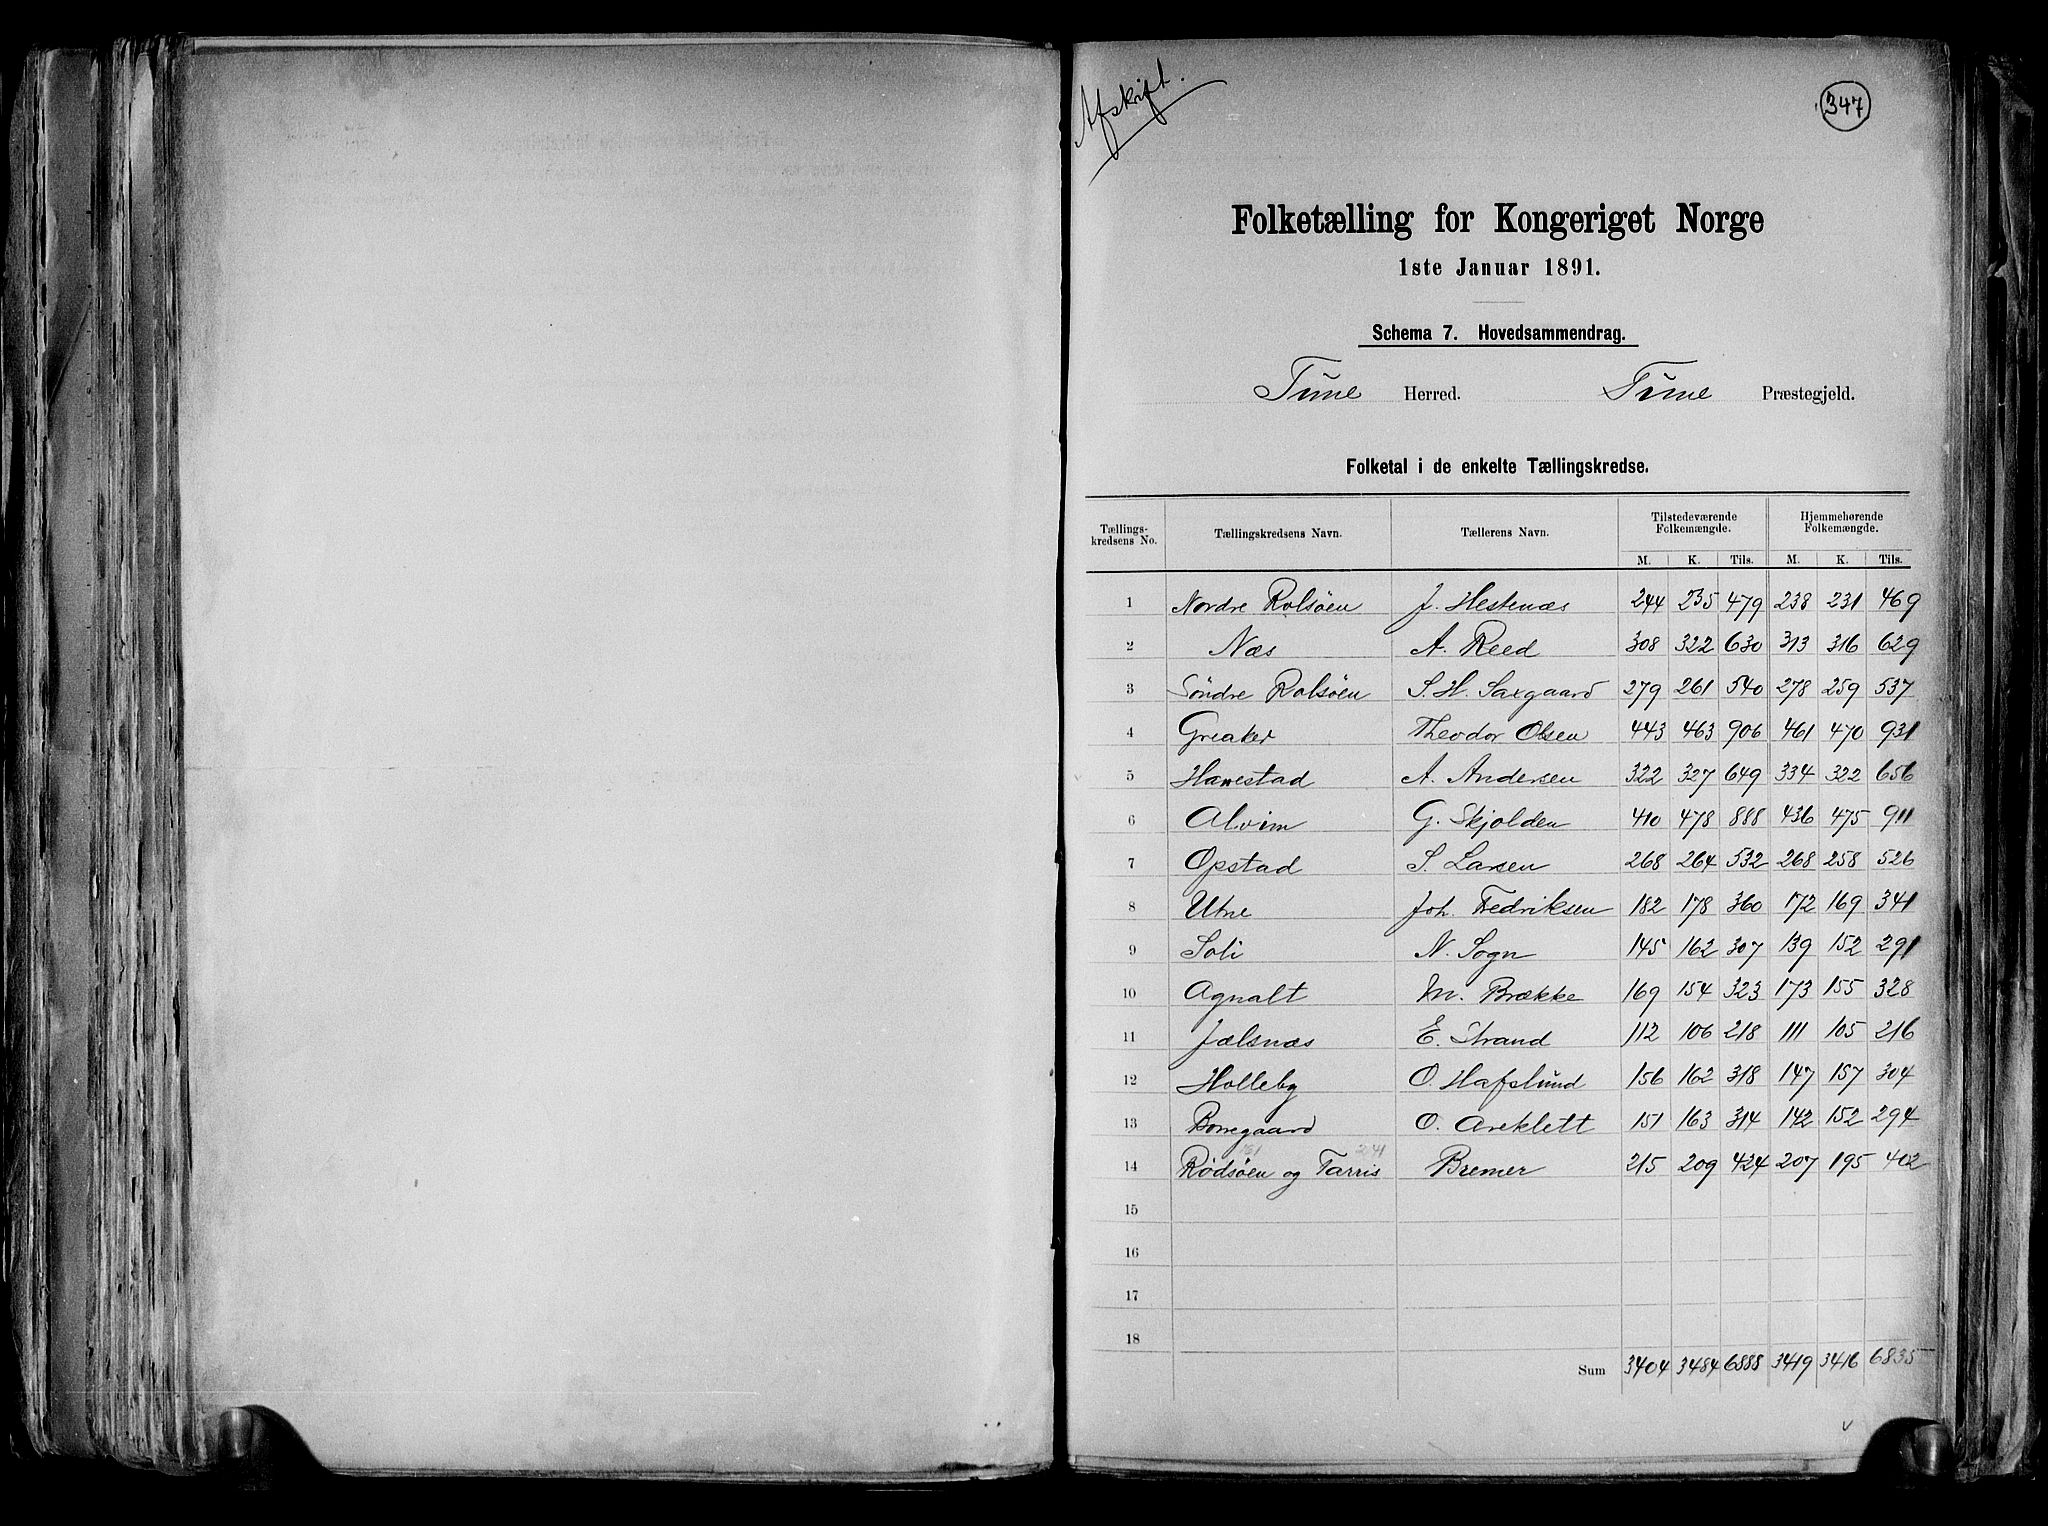 Afskrift.
347
Folketælling for Kongeriget Norge
1ste Januar 1891.
Schema 7. Hovedsammendrag.
Tune Herred. Tune Præstegjeld.
Folketal i de enkelte Tællingskredse.
Tællings-kredsens No. Tællingskredsens Navn. Tællerens Navn. Tilstedeværende Folkemængde. Hjemmehørende Folkemængde.
M. K. Tils. M. K. Tils.
1 Nordre Rolsøen J. Hestenæs 244 235 479 238 231 469
2 Næs A. Reed 308 322 630 313 316 629
3 Søndre Rolsøen S. H. Saxgaard 279 261 540 278 259 537
4 Greaker Theodor Olsen 443 463 906 461 470 931
5 Hannestad A. Andersen 322 327 649 334 322 656
6 Alvim G. Skjolden 410 478 888 436 475 911
7 Opstad S. Larsen 268 264 532 268 258 526
8 Utne Joh. Fredriksen 182 178 360 172 169 341
9 Soli N. Sogn 145 162 307 139 152 291
10 Agnalt M. Brække 169 154 323 173 155 328
11 Jælsnæs E. Strand 112 106 218 111 105 216
12 Holleby O. Hafslund 156 162 318 147 157 304
13 Borregaard O. Areklett 151 163 314 142 152 294
14 Rødsøen og Tarris Bremer 215 209 424 207 195 402
15
16
17
18
Sum 3404 3484 6888 3419 3416 6835